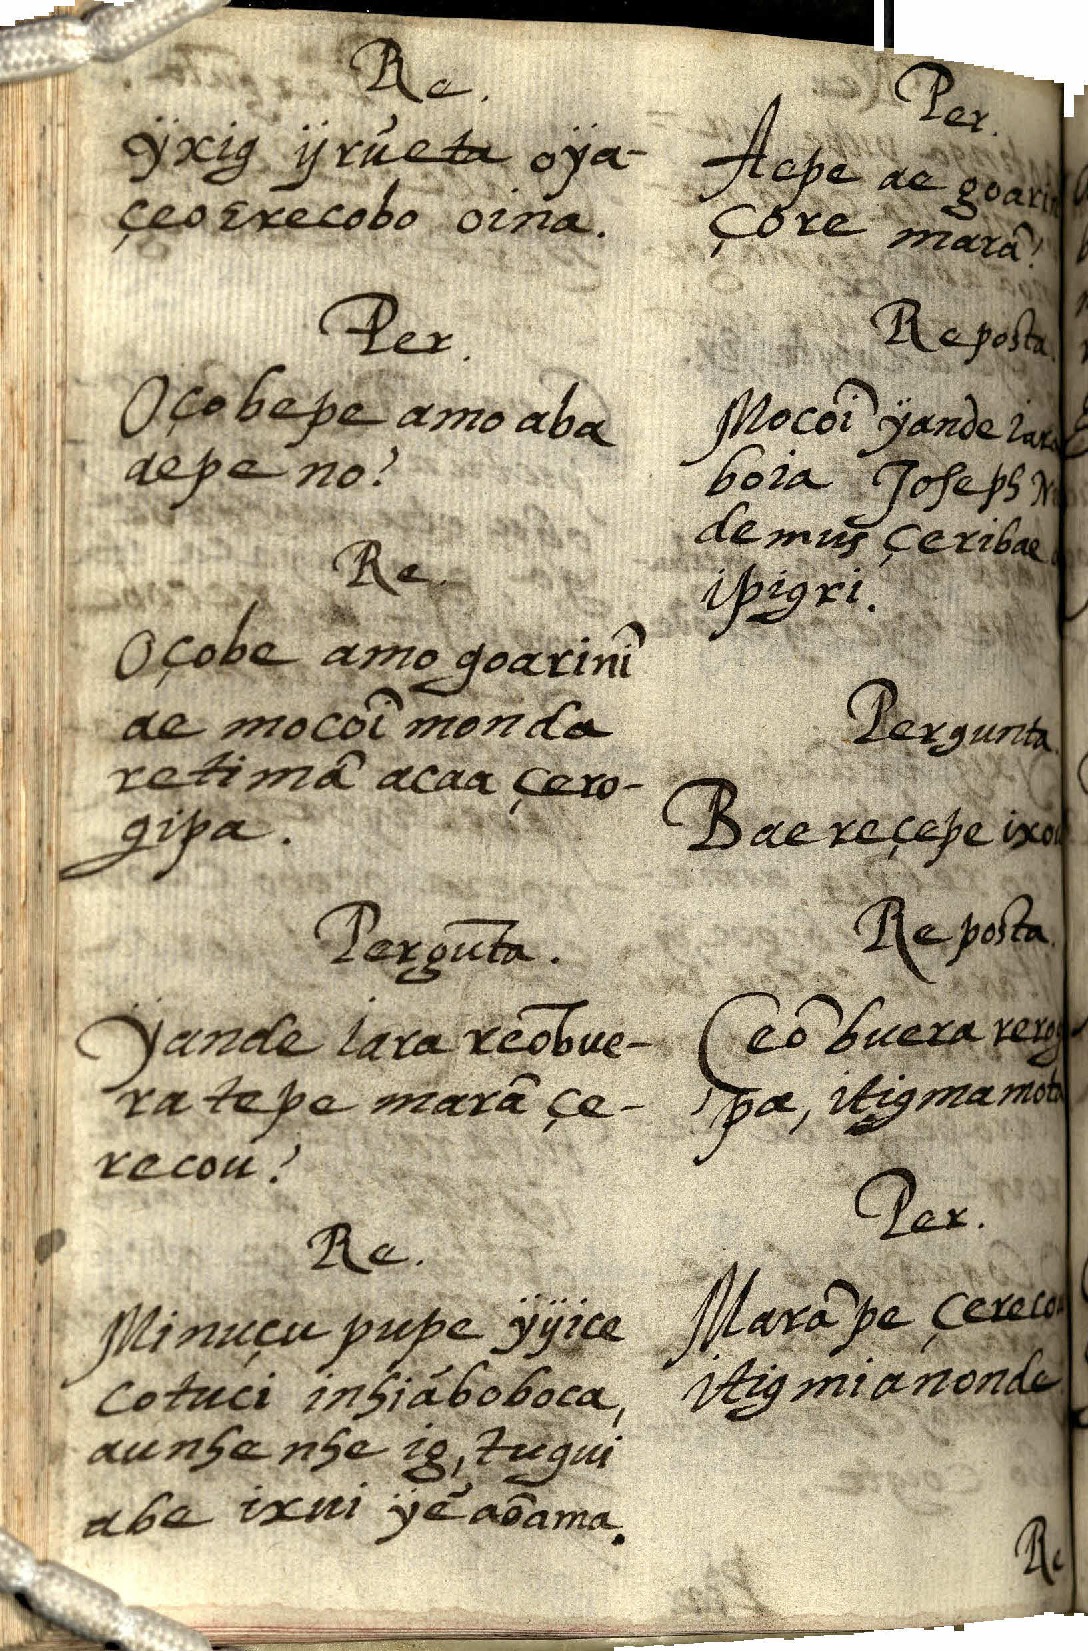 Re.
ÿxig ÿrũeta oÿa-
çeoErecobo oina.
Per.
Oçobepe amo aba
aepe no?
Re.
Oçobe amo goarinĩ
ae mocoĩ monda
retimã acaa çero-
gipa.
Pergũta.
Yande Iara reõbue-
ra tepe marã çe-
recou?
Re.
Minuçu pupe ÿÿice
cotuci inhiáboboca,
aunhe nhe ig, tugui
abe ixui ÿẽ aõama.
Per.
Aepe ae
çore marã?
Reposta.
Mocoĩ ÿande
boia Joseph
demus çeribae
ipigri.
Pergunta.
Baereçepe
Reposta.
Ceõ buera
pa,
Per.
Marã pe
itigmianonde
Re